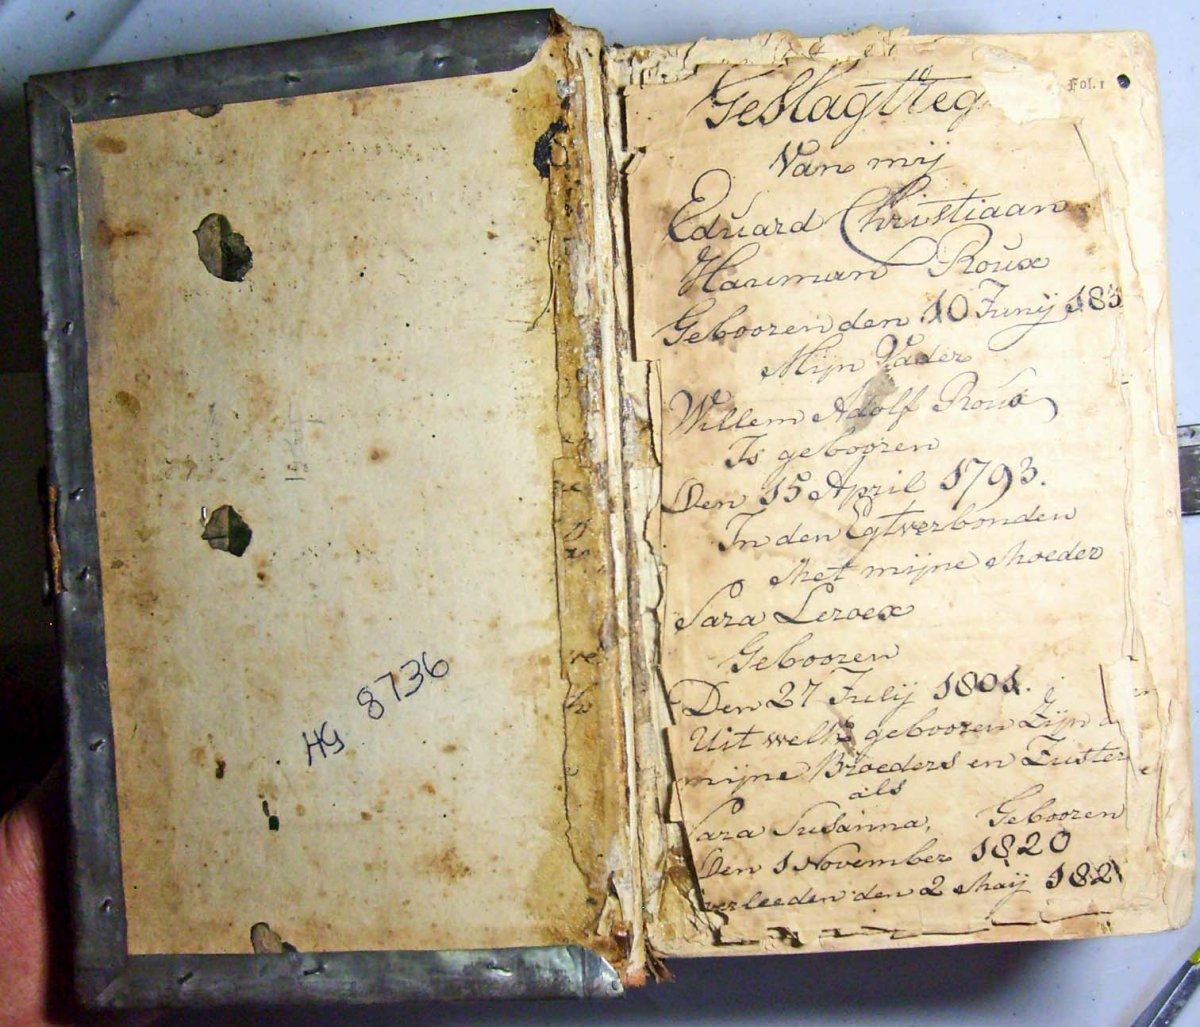 HG 8736
Fol. 1
Van mij
Eduard Christiaan
Hauman Roux
Geboozen den 10 Junÿ 183
Mijn Vader
Willem Adolf Roux
Is geboozen
Den 15 April 1793.
In den Egtverbonden
Met mijne Moeder
Sara Leroex
Geboozen
Den 27 Julij 1801.
Uit welke geboozen Zijn
mijne Broeders en Zuster
als
Sara Susanna, Geboozen
Den 1 November 1820
verleeden den 2 Maÿ 182